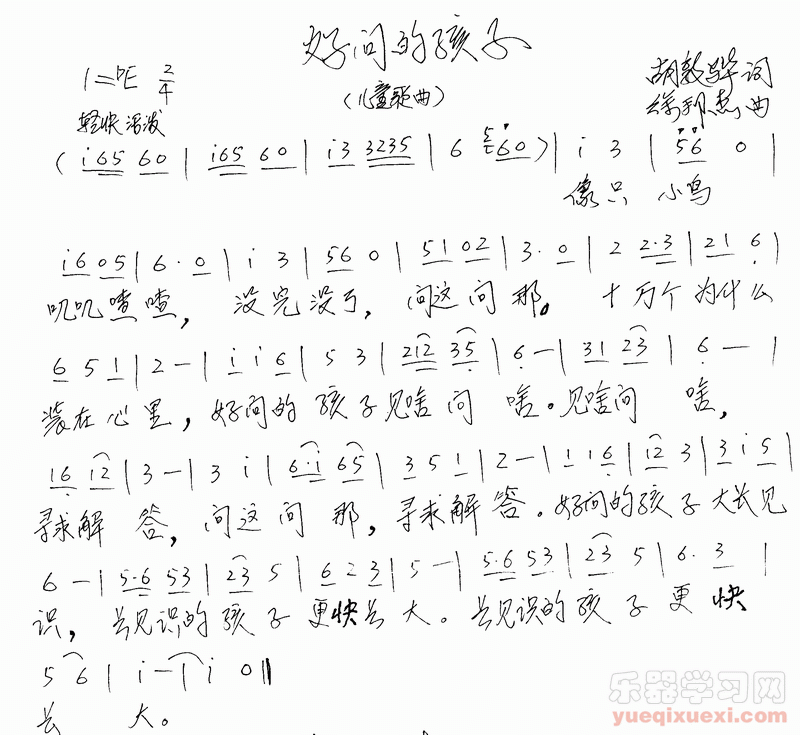 好问的孩子
(儿童歌曲)
1=bE 2/4
胡敦华词
徐邦杰曲
轻快活泼
(i65 60|i65 60|i3 3235|6 560)|i 3|56 0|
像只 小鸟
i605|6·0|i 3|56 0|51 02|3·0|2 2·3|21 6|
叽叽喳喳, 没完没了, 问这问那。 十万个为什么
6 5 1|2-|i i 6|5 3|212 35|6-|31 23|6-|
装在心里, 好问的孩子见啥问 啥。见啥问 啥,
16 12|3-|3 i|6·i 65|3 5 1|2-|1 16|12 3|3 i 5|
寻求解 答, 问这问 那, 寻求解答。好问的孩子大长见
6-|5·6 53|23 5|6 2 3|5-|5·6 53|23 5|6· 3|
识, 长见识的孩子更快长大。长见识的孩子更快
5 6|i-|i 0‖
长 大。
乐器学习网
yueqixuexi.com